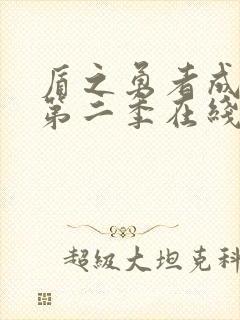 盾之勇者成
第二季在綫
超級大坦克科